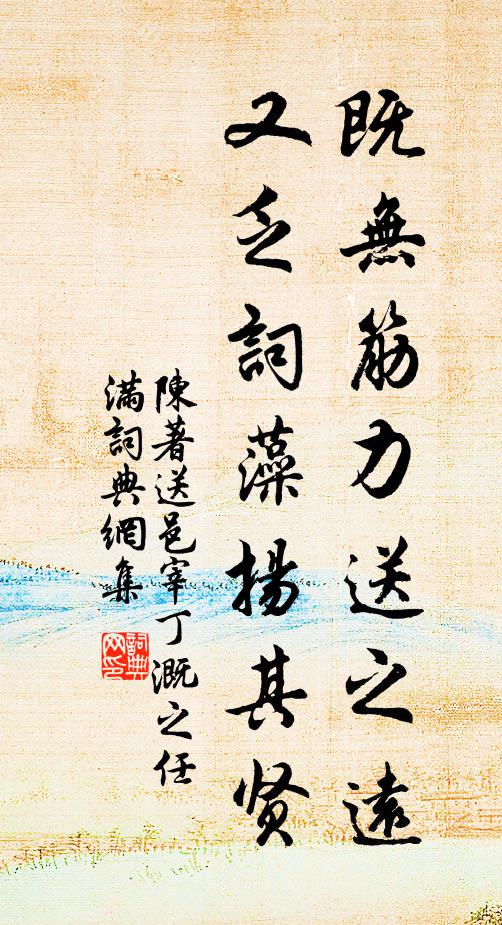 既無筋力送之遠
又乏詞藻揚其贤
陳著送邑宰丁溉之任
滿詞典網集
詞典